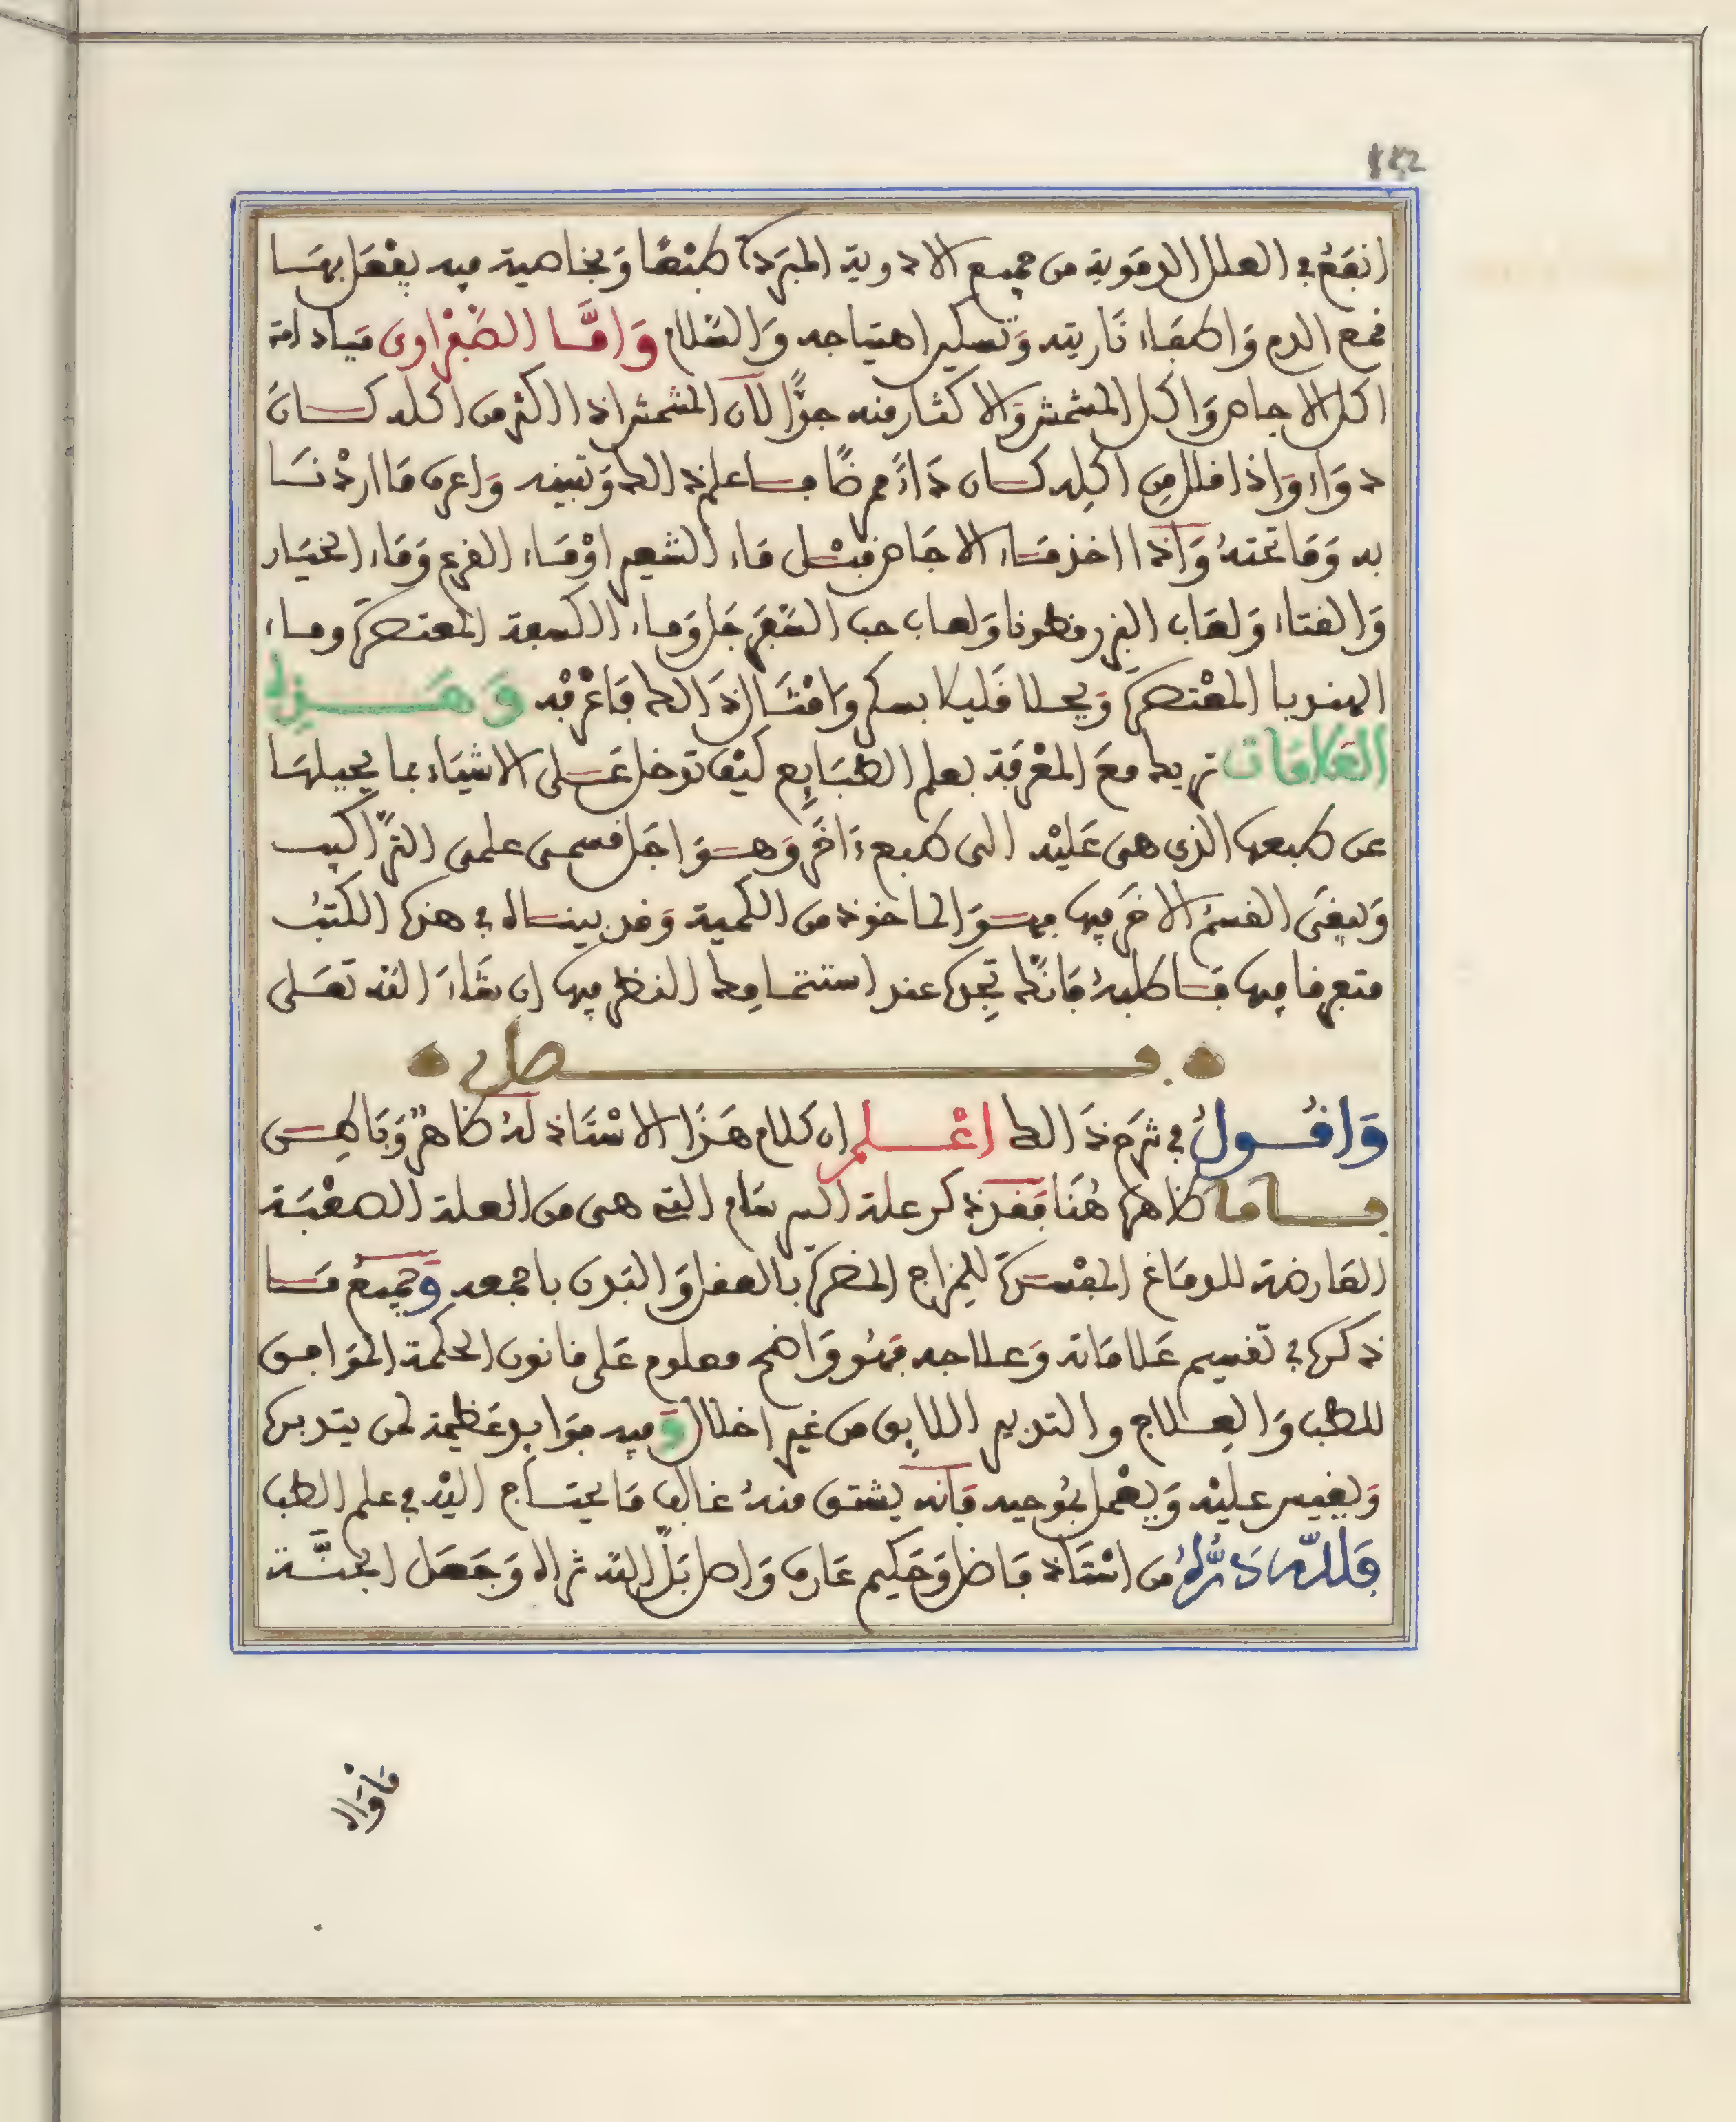 142
انفع في العلل الدموية من جميع الادوية المبردة طبعًا وبخاصية فيه يفعل بها
قمع الدم واطفاء ناريته وتسكين اهتياجه والسلام وامّا الصفراوي فبادامة
اكل الاجاص واكل المشمش والاكثار منه جدًّا لان المشمش اذا اكثر من اكله كان
دواء واذا قلل من اكله كان داءً ممرضًا فاعلم ذالك وتبينه واعرف ما اردنا
به وما تحته واذا اخذ ماء الاجاص فبمثل ماء الشعير او ماء القرع وماء الخيار
والقثاء ولعاب البزر قطونا ولعاب حب السفرجل وماء البقلة المعتصرة وماء
الهندبا المعتصرة ويحلا قليلا بسكر وامثال ذالك فاعرفه وهذه
العلامات تريك مع المعرفة بعلم الطبايع كيف تدخل على الاشياء بما يحيلها
عن طبعها الذي هي عليه الى طبع ءاخر وهو اجل قسمي علمي التراكيب
ويبقى القسم الاخر فيها فهو الماخوذ من الكمية وقد بيناه في هذه الكتب
متعرفا فيها ما طلبه فانك تجده عند استتمامك النظر فيها ان شاء الله تعلى
فصل
واقول في شرح ذالك اعلم ان كلام هذا الاستاذ له ظاهرٌ وباطن
فاما ظاهره هنا فقد ذكر علة البرسام التي هي من العلة الصعبة
العارضة للدماغ المفسدة للمزاج المضرة بالعقل والبدن باجمعه وجميع ما
ذكره في تقسيم علاماته وعلاجه فهو واضح معلوم على قانون الحكمة الموافق
للطب والعلاج والتدبير اللايق من غير اخلال وفيه فوايد عظيمة لمن يتدبره
ويقيس عليه ويعمل بموجبه فانه يشتق منه غالب ما يحتاج اليه في علم الطب
فلله درّه من استاذ فاضل وحكيم عارف واصل بلّ الله ثراه وجعل الجنّة
ماواه